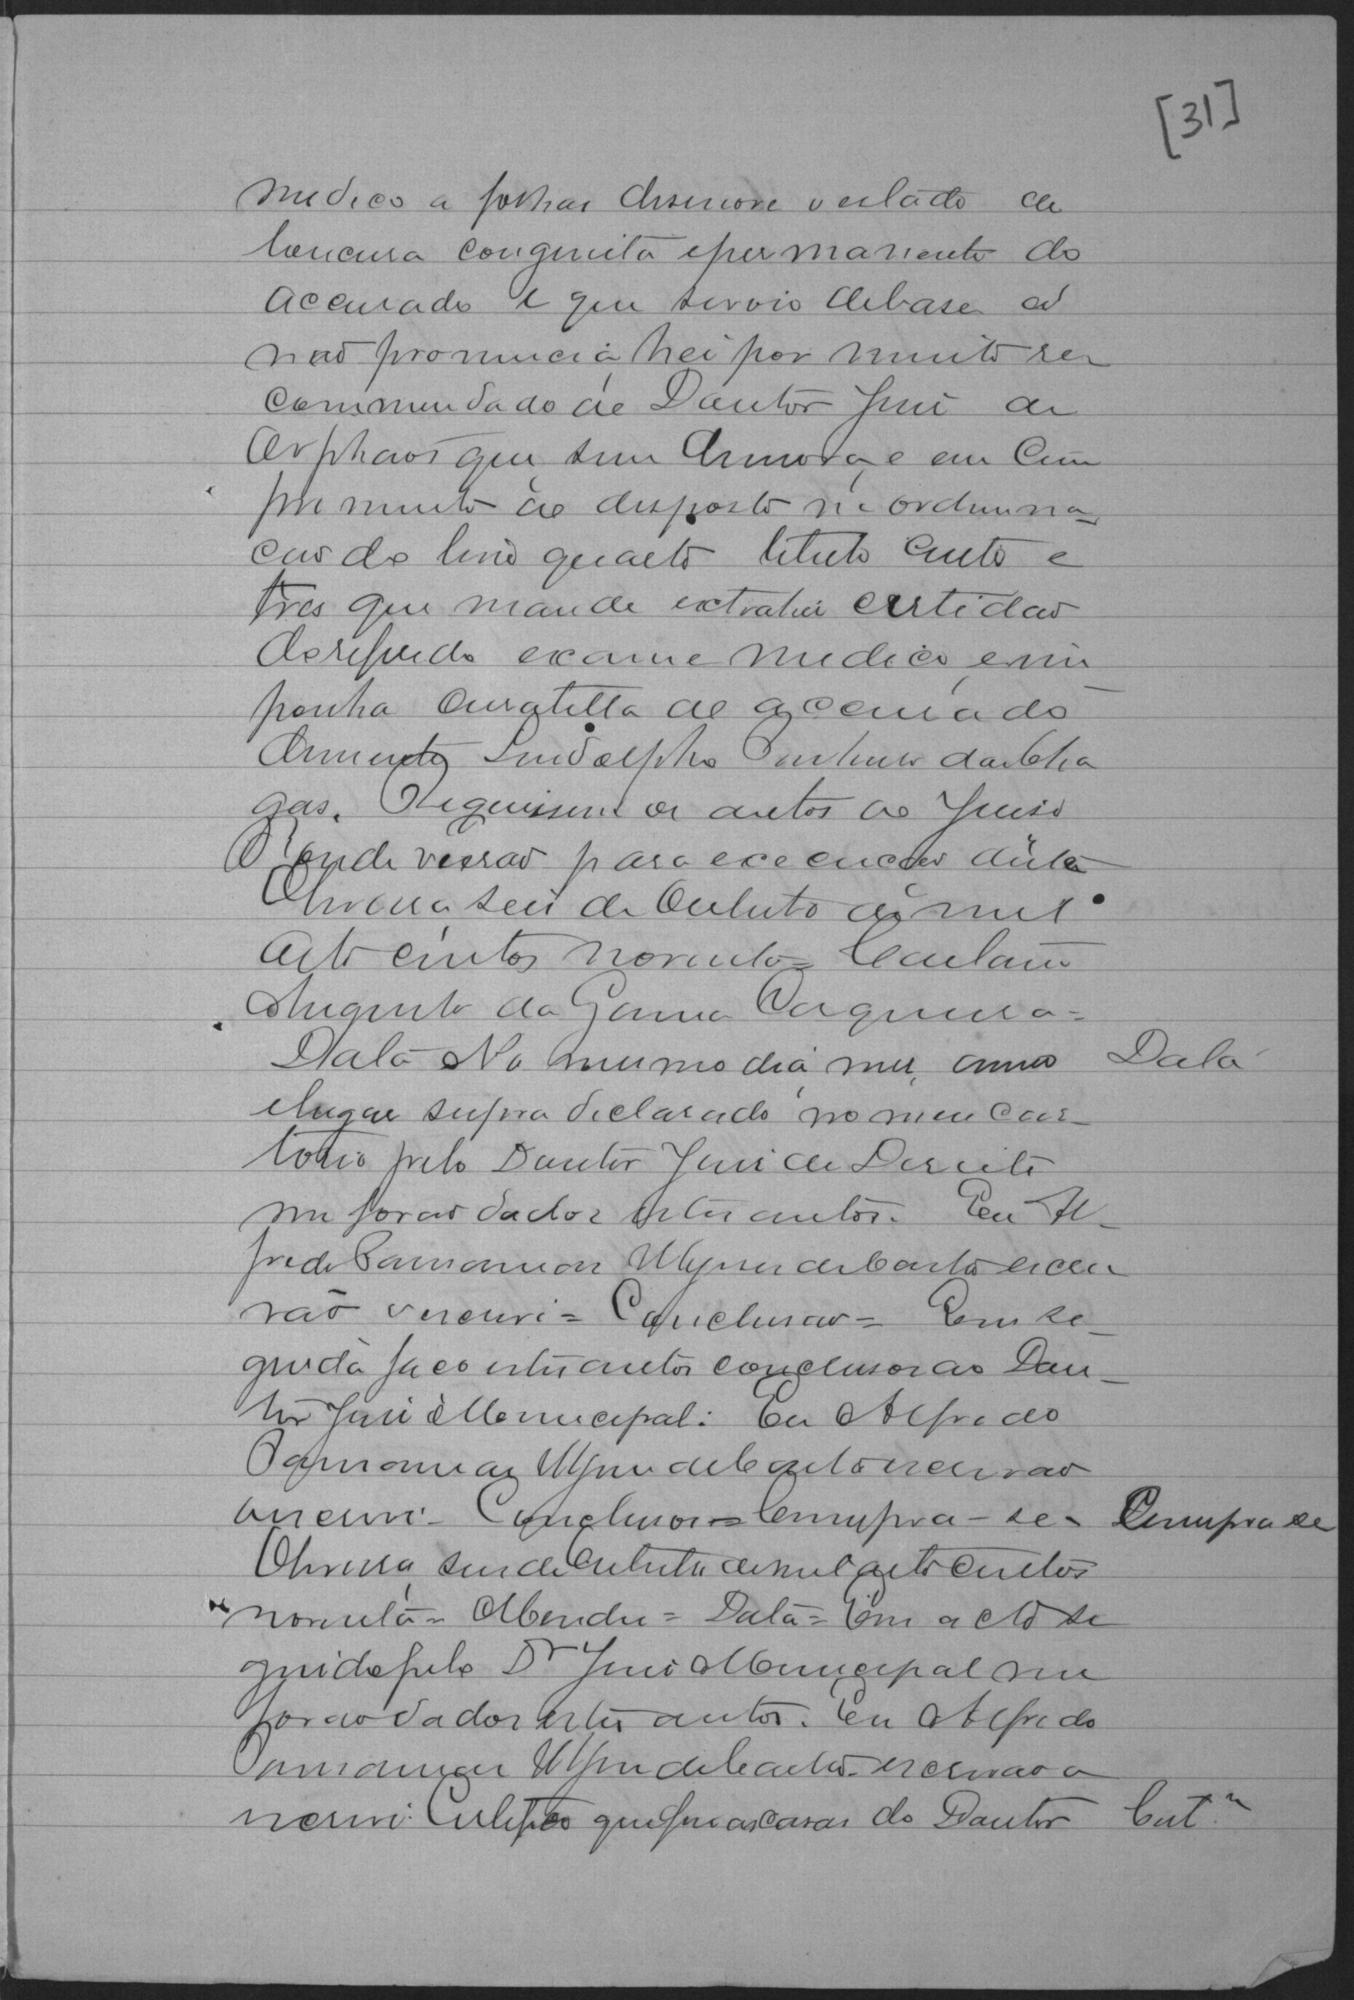 [31]
medico a folhas desenove o estado de
loucura congenita e permanente do
accusado e que servio de base á
não pronuncia, hei por muito re
commendado ao Doutor Juis de
Orphãos que sem demora, e em cum
primento ao disposto na ordena
ção do livro quarto titulo cento e
tres que mande extrahir certidão
do referido exame medico, e im
ponha curatella ao accusado
demente Lindolpho Pinheiro das Cha
gas. Requisem os autos ao Juiso
d'onde vierão para execução desta
Oliveira seis de Outubro de mil
oito centos noventa = Caetano
Augusto da Gama Cerqueira =
Data No mesmo dia, mes, anno Data
e lugar supra declarado no meu car_
torio pelo Doutor Juis de Direito
me forão dados estes autos. Eu Al_
fredo de Castro escri
vão o escrevi = Conclusão = Em se_
guida faço estes autos conclusos ao Dou_
tor Juis Municipal: Eu Alfredo
de Castro escrivão
o escrevi - Conclusos = Cumpra-se - Cumpra se
Oliveira, seis de Outubro de mil oito centos
noventa = Mendes = Data = Em acto se
guido pelo Dr Juis Municipal me
forão dados estes autos. Eu Alfredo
de Castro escrivão o
escrevi. Certifico que fui as casas do Doutor Cert.m